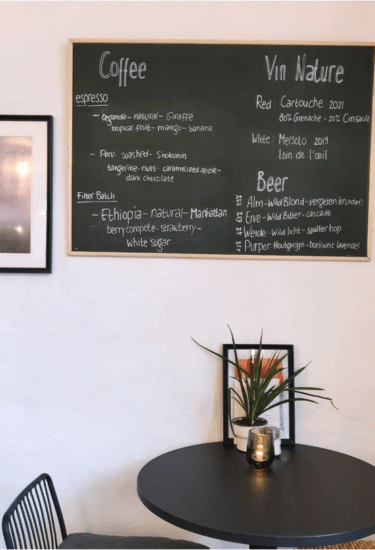 Coffee
espresso
- Oeganda - natural - Giraffe
tropical fruit - mango - banana
- Peru - washed - Shokunin
tangerine - nuts - caramelized apple -
dark chocolate
Filter Batch
- Ethiopia - natural - Manhattan
berry compote - strawberry -
white sugar
Vin Nature
Red: Cartouche 2021
80% Grenache - 20% Cinsault
White: Mersolo 2019
Loin de l'œil
Beer
Alm - Wild Blond - vergeten kruiden
Erve - Wild Bitter - cascade
Weide - Wild licht - spalter hop
Purper Houtgerijpt - boekweit lavendel